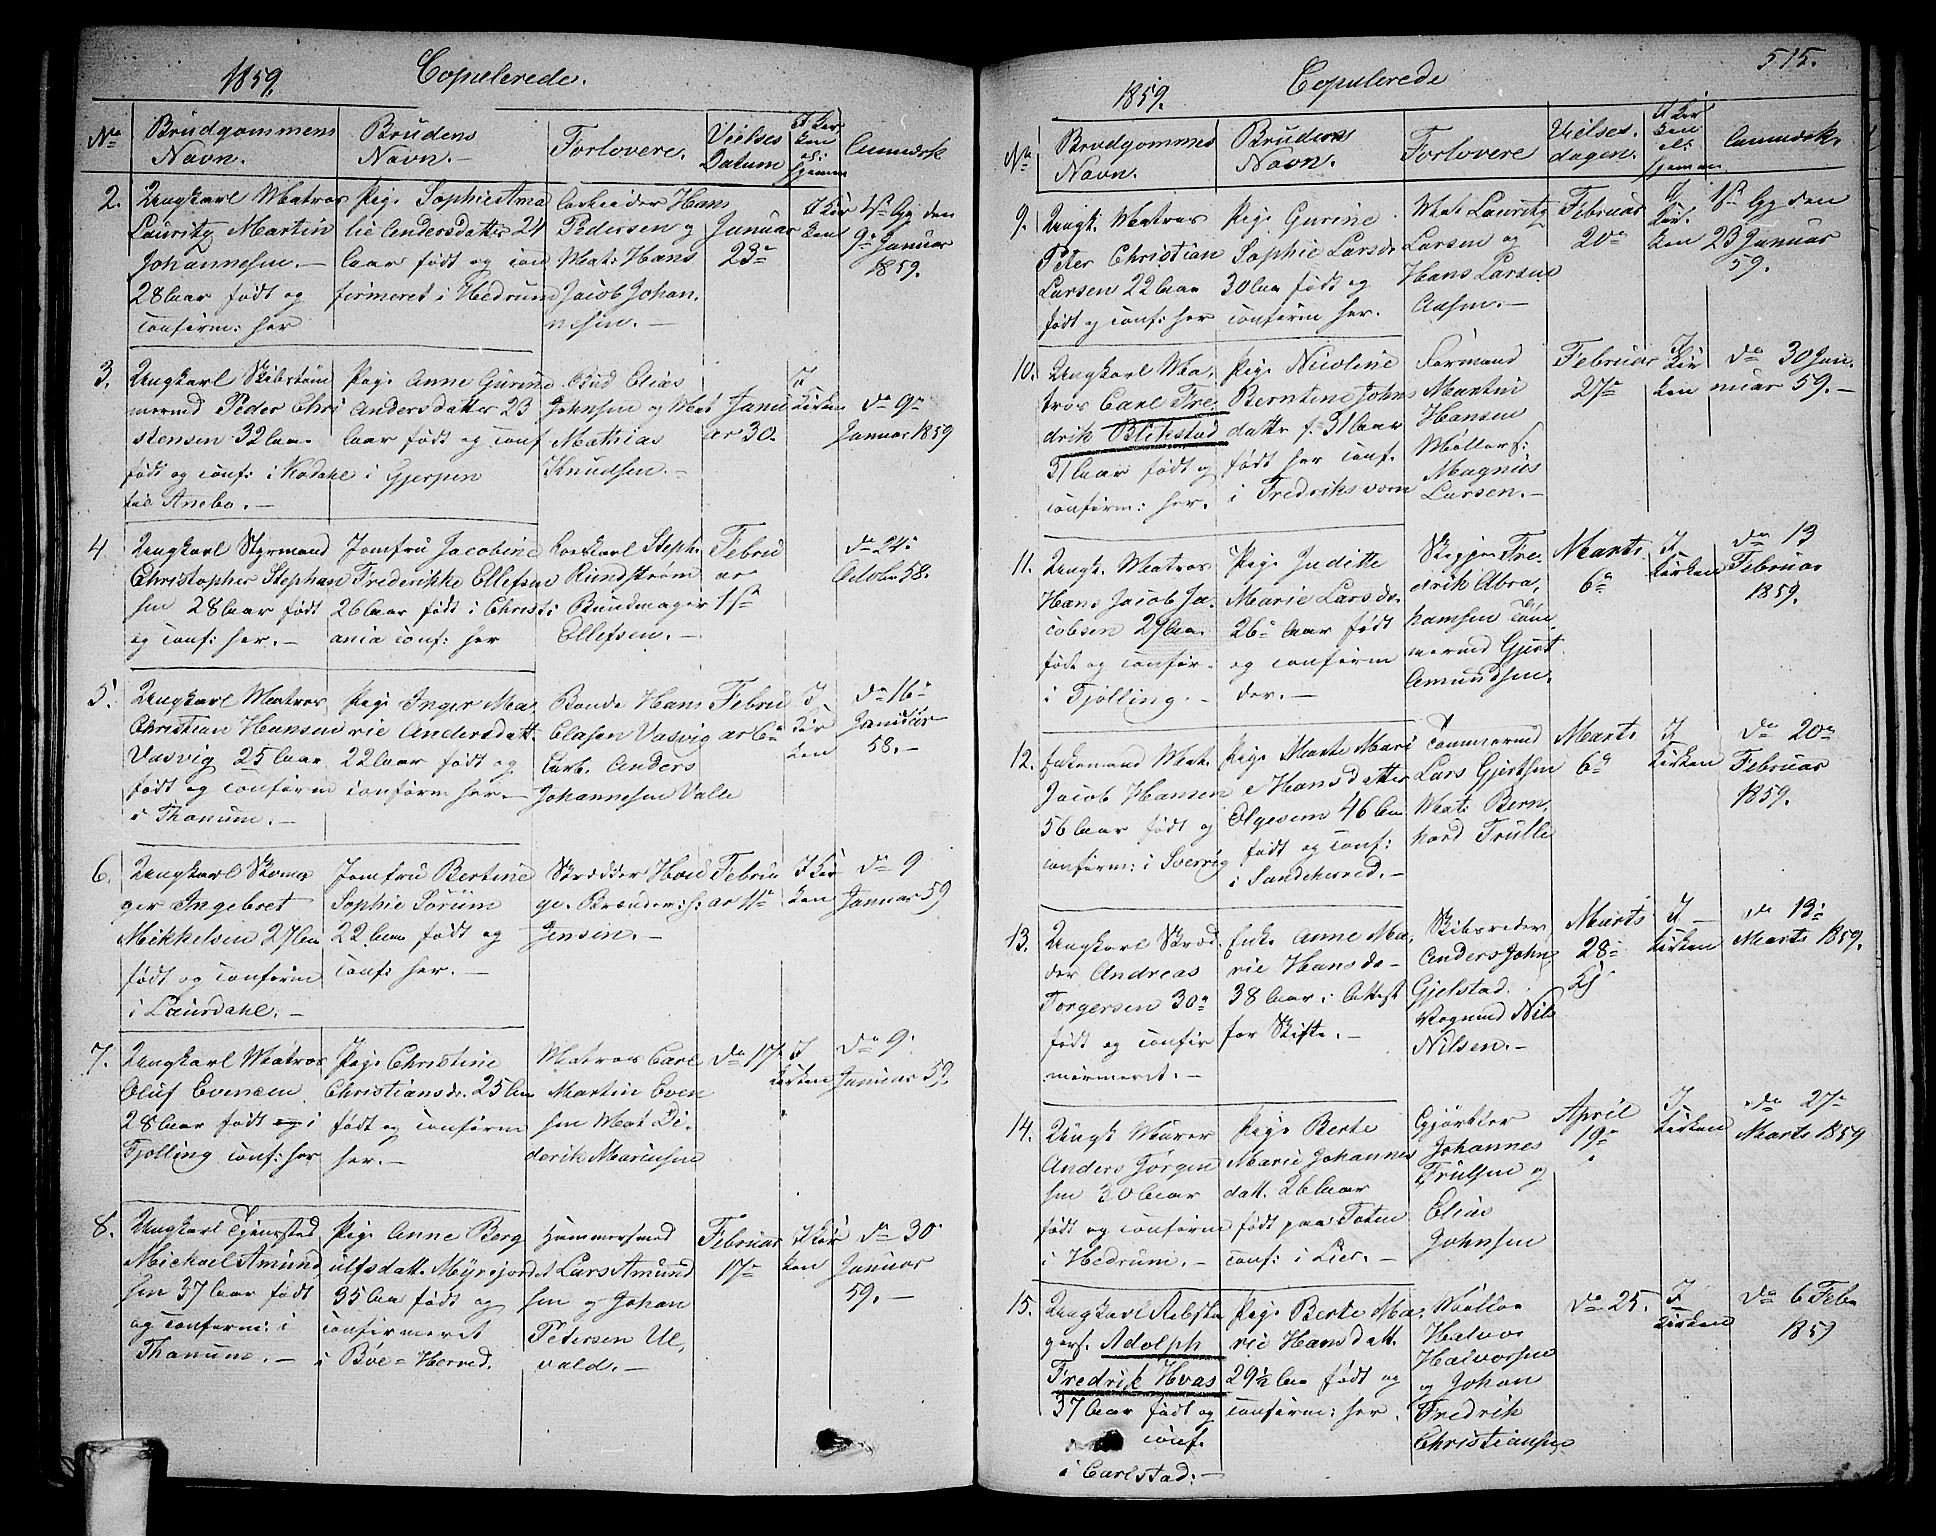 1859. Copulerede.
No
Brudgommens
Navn.
Brudens
Navn. -
Forlovere.
Vielses
Datum
I Kir
ken
el:
hjemme
Anmærk
2.
Ungkarl Matros
Lauritz Martin
Johannesen. -
28 Aar født og
confirm: her
Pige Sophie Ama
lie Andersdatter 24
Aar født og con
firmeret i Hedrum
Arbeider Hans
Pedersen og
Mat: Hans
Jacob Johan
nesen. -
Januar
23de
I Kir
ken
1ste Gg den
9de Januar
1859.
3.
Ungkarl Skibstøm
mermd Peder Chri
stensen 32 Aar
født og conf: i Kodahl
til Anebo. -
Pige Anne Gurine
Andersdatter 23
Aar født og conf
i Gjerpen
Bud Elias
Johnsen og Mat
Mathias
Knudsen. -
Janu
ar 30.
I
Kirken
do 9de
Januar 1859
4
Ungkarl Styrmand
Christopher Stephan
sen 28 Aar født
og conf: her. -
Jomfru Jacobine
Frederikke Ellefsen
26 Aar født i Christi
ania conf: her
Steph.
Rundstrøm
Bundmager
Ellefsen. -
Febru
ar
1ste
do 24de
Octobr 58.
5.
Ungkarl Matros
Christian Hansen
Vasvig 25 Aar
født og confirm
i Thanum. -
Pige Inger Ma
rie Andersdatt.
22 Aar født og
confirm her. -
Bonde Hans
Olasen Vasvig
Arb. Anders
Johannesen Valle
Febru
ar 6te
I
Kir
ken
do 16de
Januar
58. -
6.
Ungkarl Skoma
ger Ingebret
Mikkelsen 27 Aar
født og confirm
i Laurdahl. -
Jomfru Bertine
Sophie Sørum
22 Aar født og
conf: her. -
Skrædder
Jensen. -
Febru
ar 11te
I Kir
ken
do 9
Januar 59
7.
Ungkarl Matros
Oluf Evensen
28 Aar født i
Tjølling conf: her
Pige Christine
Christiansd. 25 Aar
født og confirm
her. -
Matros Carl
Martin Even
sen Mat Di
derik Mariusen
do 17.
I
Kirken
do 9.
Januar 59.
8.
Ungkarl Tjenested
Michael Amund
sen 37 Aar født
og confirm: i
Thanum. -
Pige Anne Berg
ulfsdatt. Myrejordet
35 Aar født og
confirmeret
i Bøe = Herred.
Hammersmed
Lars Amund
sen og Johan
Petersen Ul
vald. -
Februar
17de
I Kir
ken
do 30
Januar
59. -
1859. Copulerede 515.
No
Brudgommes
Navn.
Brudens
Navn.
Forlovere
Vielses
dagen.
I Kir
ken
el:
hjemme
Anmærk.
9.
Ungk. Matros
Peter Christian
Larsen 22 Aar
født og conf: her
Pige Gurine
Sophie Larsd.
30 Aar født og
confirm her.
Mat. Lauritz
Larsen og
Hans Larsen
Aasen. -
Februar
20de
I
Kir
ken
1ste Gg den
23 Januar
59.
10.
Ungkarl Ma
tros Carl Fre
drik Blikstad
31 Aar født og
confirm: her.
Pige Nicoline
Berntine Johns
datter f. 31 Aar
født her conf.
i Fredriksværn
Formand
Martin
Hansen
Møllers:
Magnus
Larsen. -
Februar
27de
I
Kir
ken
do 30 Jan
nuar 59. -
11.
Ungk. Matros
Hans Jacob Ja
cobsen 29 Aar.
født og confir.
i Tjølling. -
Pige Juditte
Marie Larsd.
26 Aar født
og confirm
der. -
Skipper Fre
drik Abra
hamsen Tøm
mermd Gjert
Amundsen.
Marts
6te
I
Kirken
do 13
Februar
1859.
12.
Enkemand Mat.
Jacob Hansen
56 Aar født og
confirm: i Sverrig
Pige Marte Mari
Hansdatter
46 Aar
født og conf:
i Sandeherred. -
Tømmermd
Lars Gjertsen
Mat: Bern
hard Trulle
Marts
6te
I
Kirken
do 20de
Februar
1859.
13.
Ungkarl Skræd
der Andreas
Torgersen 30
født og confir
mermeret. -
Enke Anne Ma
rie Hansd.
38 Aar. Attest
for Skifte. -
Skibsreder
Anders John
Gjelstad.
Vognmd Nils
Nilsen. -
Marts
28
I
Kirken
do 13de
Marts 1859.
14.
Ungk Murer
Anders Jørgen
sen 30 Aar
født og confirm
i Hedrum. -
Pige Berte
Marie Johannes
datt. 26 Aar
født paa Toten
conf: i Lier. -
Gjørtler
Johannes
Trulsen og
Elias
Johnsen
April
19de
I
Kirken
do 27de
Marts 1859
15.
Ungkarl Rebsla
gers. Adolph
Fredrik Hvas
37 Aar født og
conf.
i Carlstad. -
Pige Berte Ma
rie Hansdatt.
29½ Aar født og
confirm: her.
Møller
Halvor
Halvorsen
og Johan
Fredrik
Christiansen
do 25.
I
Kirken
do 6 Febr
1859